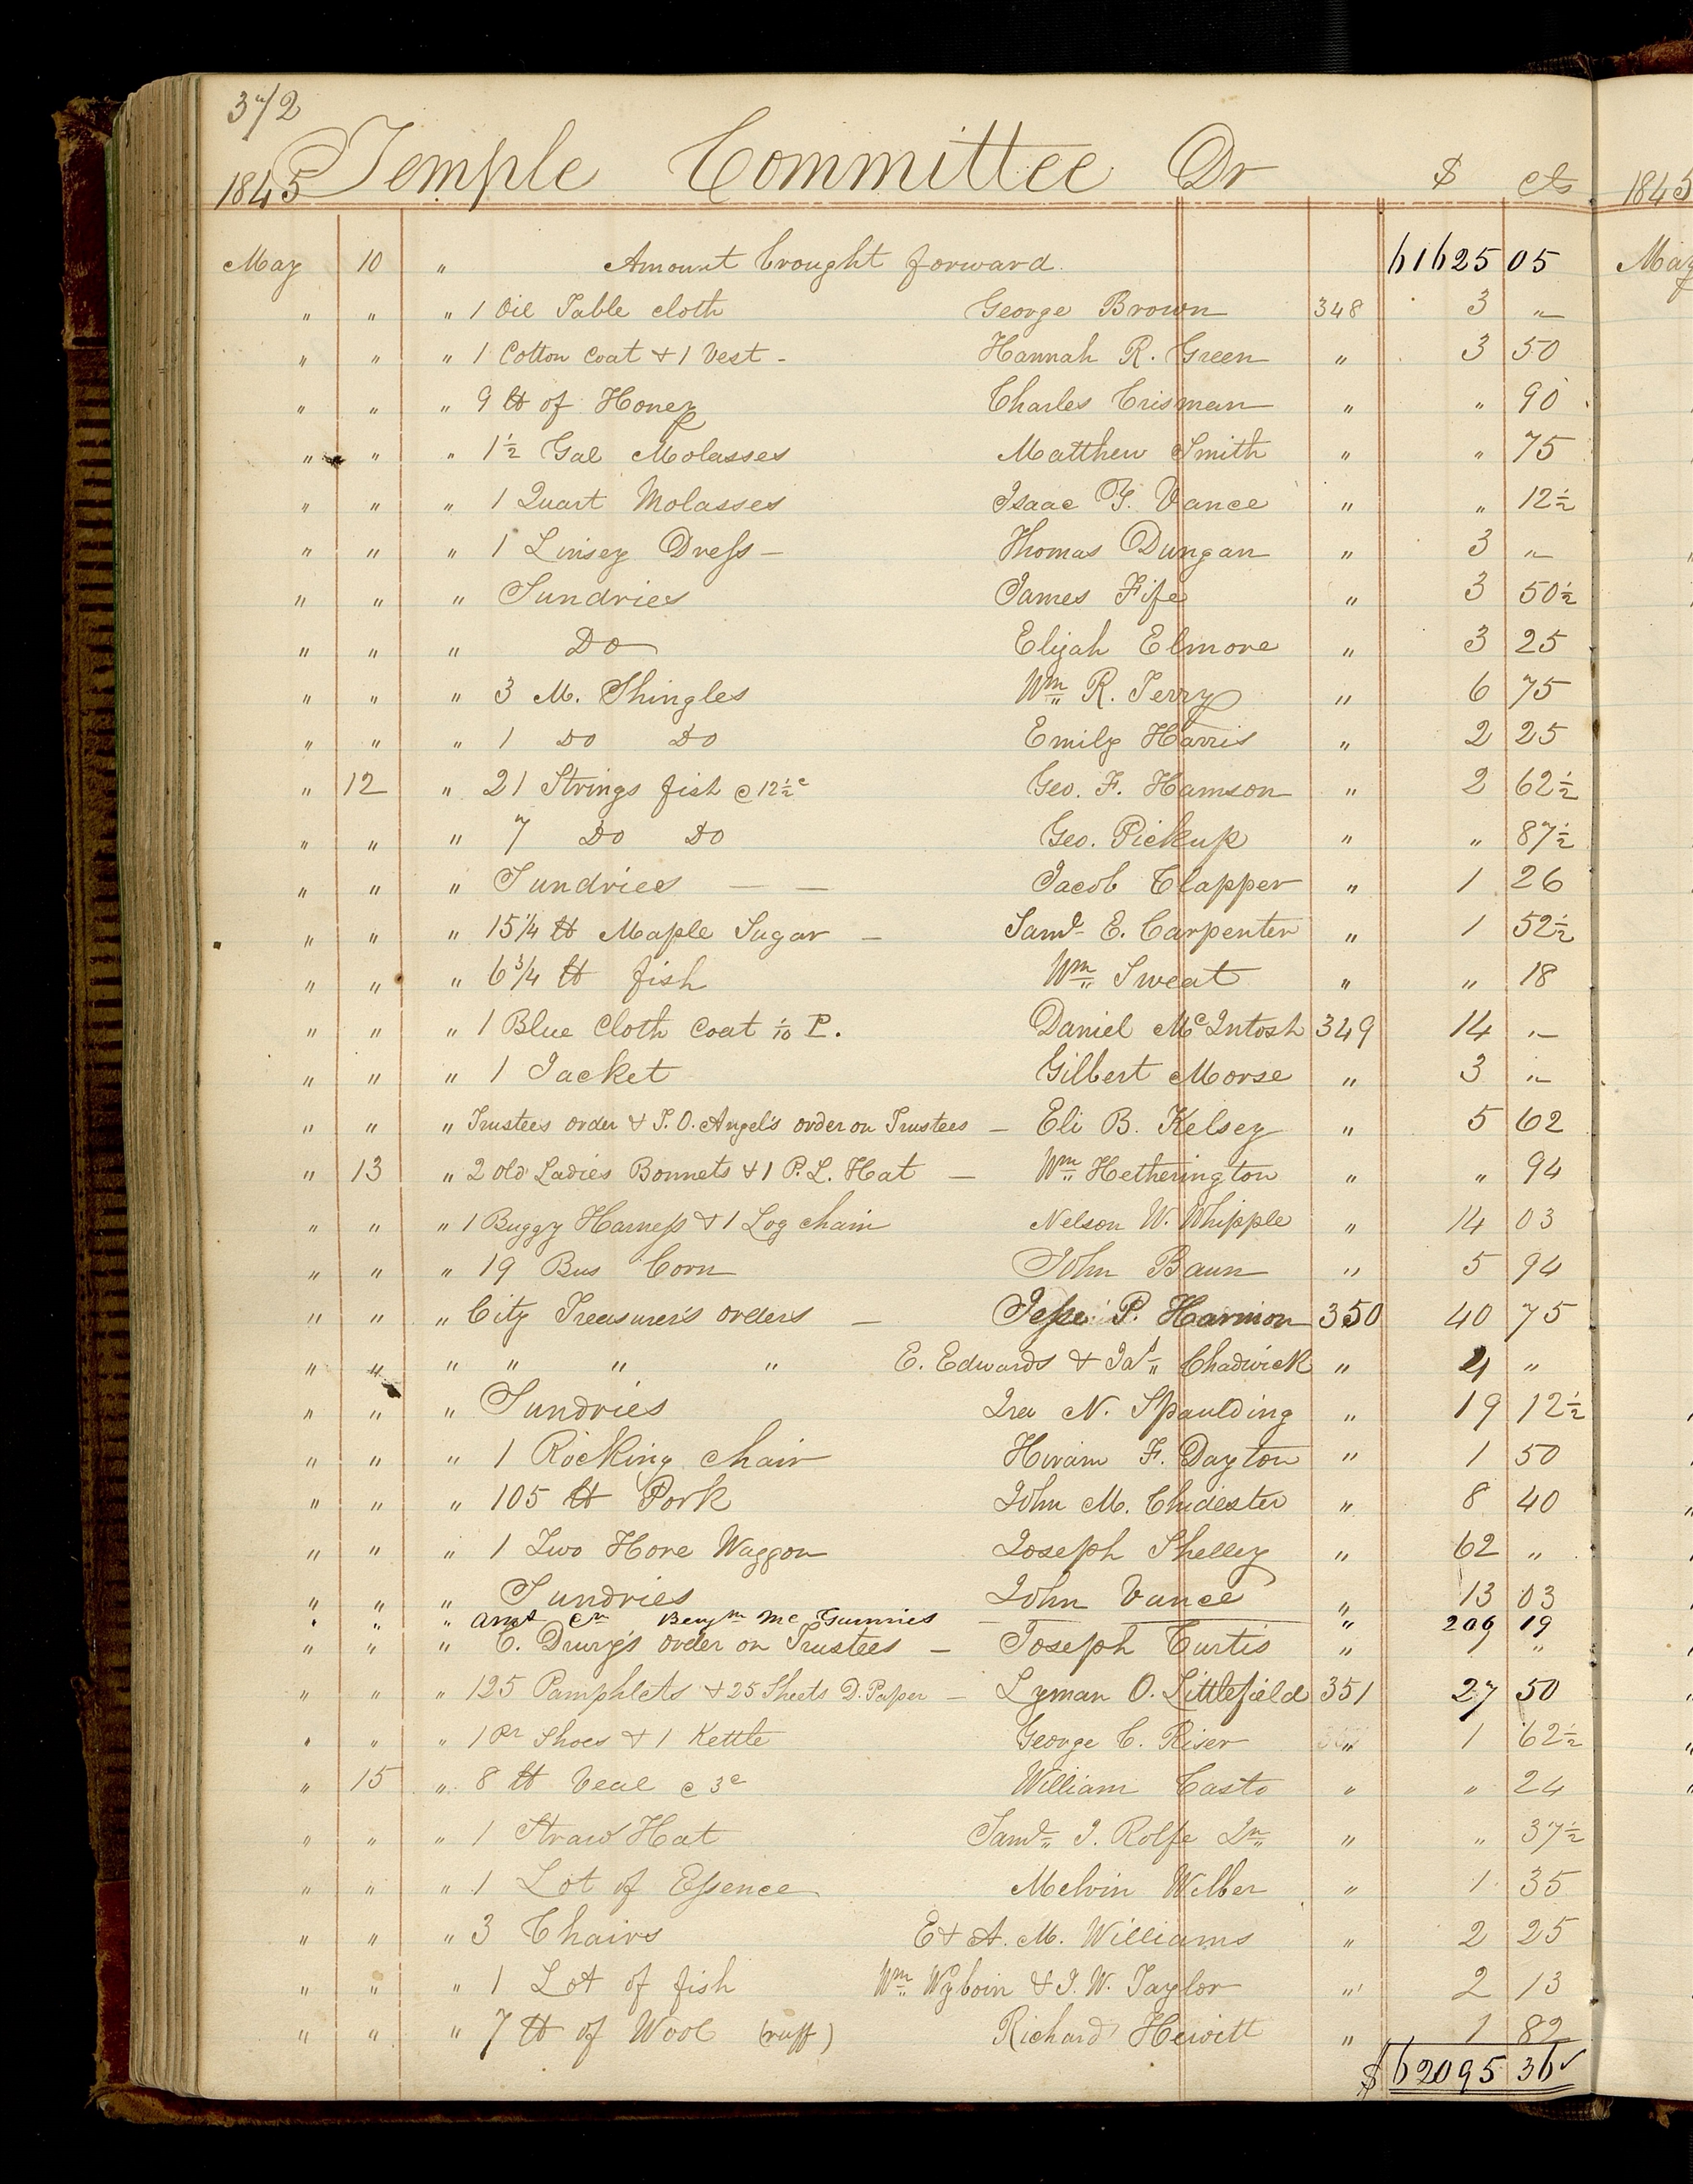 372
1845 Temple Committee Dr $ cts 1845
May 10 " Amount brought forward. 61625 05 May
" " " 1 Oil Table cloth George Brown 348 3 "
" " " 1 Cotton Coat & 1 Vest - Hannah R. Green " 3 50
" " " 9 lb of Honey Charles Crisman " " 90
" " " 1½ Gal Molasses Matthew Smith " " 75
" " " 1 Quart Molasses Isaac Y. Vance " " 12½
" " " 1 Linsey Dress - Thomas Dungan " 3 "
" " " Sundries James Fife " 3 50½
" " " Do Elijah Elmore " 3 25
" " " 3 M. Shingles Wm R. Terry " 6 75
" " " 1 Do Do Emily Harris " 2 25
" 12 " 21 Strings fish @ 12½c Geo. F. Hamson " 2 62½
" " " 7 Do Do Geo. Pickup " " 87½
" " " Sundries - - Jacob Clapper " 1 26
" " " 15¼ lb Maple Sugar - Saml E. Carpenter " 1 52½
" " " 6¾ lb fish Wm Sweat " " 18
" " " 1 Blue Cloth Coat 1/10 P. Daniel McIntosh 349 14 "
" " " 1 Jacket Gilbert Morse " 3 "
" " " Trustees order & T. O. Angel's order on Trustees - Eli B. Kelsey " 5 62
" 13 " 2 old Ladies Bonnets & 1 P. L. Hat - Wm Hetherington " " 94
" " " 1 Buggy Harness & 1 Log chain Nelson W. Whipple " 14 03
" " " 19 Bus Corn John Baun " 5 94
" " " City Treasurer's orders - Jesse P. Harmon 350 40 75
" " " " " " E. Edwards & Jas Chadwick " 4 "
" " " Sundries Ira N. Spaulding " 19 12½
" " " 1 Rocking chair Hiram F. Dayton " 1 50
" " " 105 lb Pork John M. Chidester " 8 40
" " " 1 Two Hore Waggon Joseph Shelley " 62 "
" " " Sundries John Vance " 13 03
" " " Amt Cr Benjn McGinnies " 206 19
" " " C. Drury's order on Trustees - Joseph Curtis " 1 "
" " " 125 Pamphlets & 25 Sheets D. Paper - Lyman O. Littlefield 351 27 50
" " " 1 Pr Shoes & 1 Kettle George C. Riser " 1 62½
" 15 " 8 lb Veal @ 3c William Casto " " 24
" " " 1 Straw Hat Saml J. Rolfe Jnr " " 37½
" " " 1 Lot of Essence Melvin Wilber " 1 35
" " " 3 Chairs E & A. M. Williams " 2 25
" " " 1 Lot of fish Wm Wyboin & J. W. Taylor " 2 13
" " " 7 lb of Wool (ruff) Richard Hewitt " 1 82
$62095 36 ✓